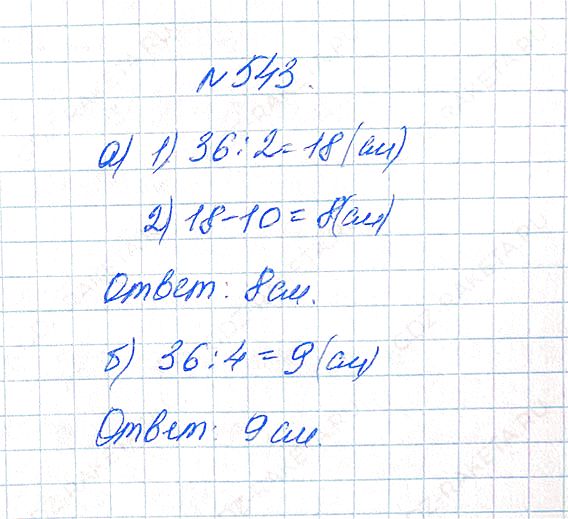 № 543.
а) 1) 36 : 2 = 18 (см)
2) 18 - 10 = 8 (см)
Ответ: 8 см.
б) 36 : 4 = 9 (см)
Ответ: 9 см.